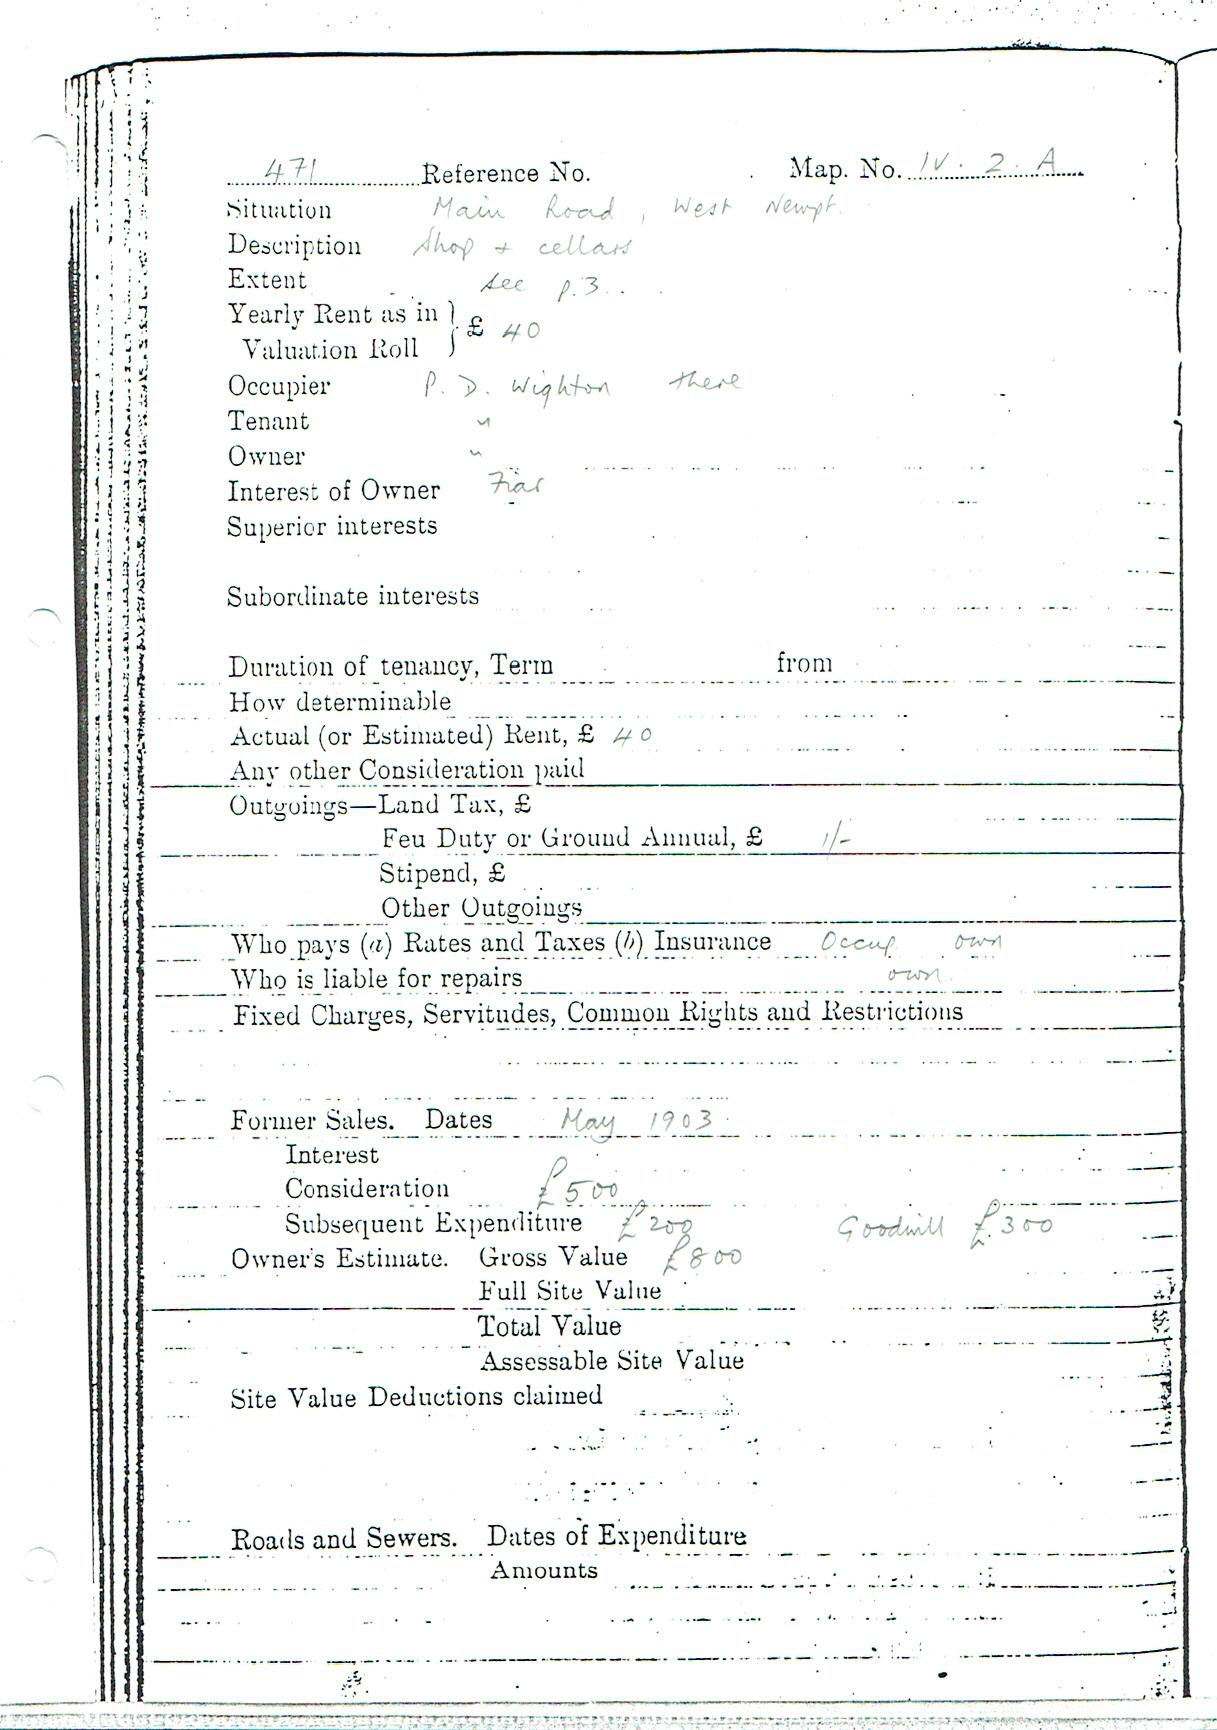 471 Reference No. Map. No. IV. 2. A
Situation Main Road, West Newpt.
Description Shop + cellars
Extent see p.3.
Yearly Rent as in } £ 40
Valuation Roll
Occupier P. D. Wighton there
Tenant "
Owner "
Interest of Owner Fiar
Superior interests
Subordinate interests
Duration of tenancy, Term from
How determinable
Actual (or Estimated) Rent, £ 40
Any other Consideration paid
Outgoings—Land Tax, £
Feu Duty or Ground Annual, £ 1/-
Stipend, £
Other Outgoings
Who pays (a) Rates and Taxes (b) Insurance Occup. own
Who is liable for repairs own.
Fixed Charges, Servitudes, Common Rights and Restrictions
Former Sales. Dates May 1903
Interest
Consideration £500
Subsequent Expenditure £200 Goodwill £300
Owner's Estimate. Gross Value £800
Full Site Value
Total Value
Assessable Site Value
Site Value Deductions claimed
Roads and Sewers. Dates of Expenditure
Amounts